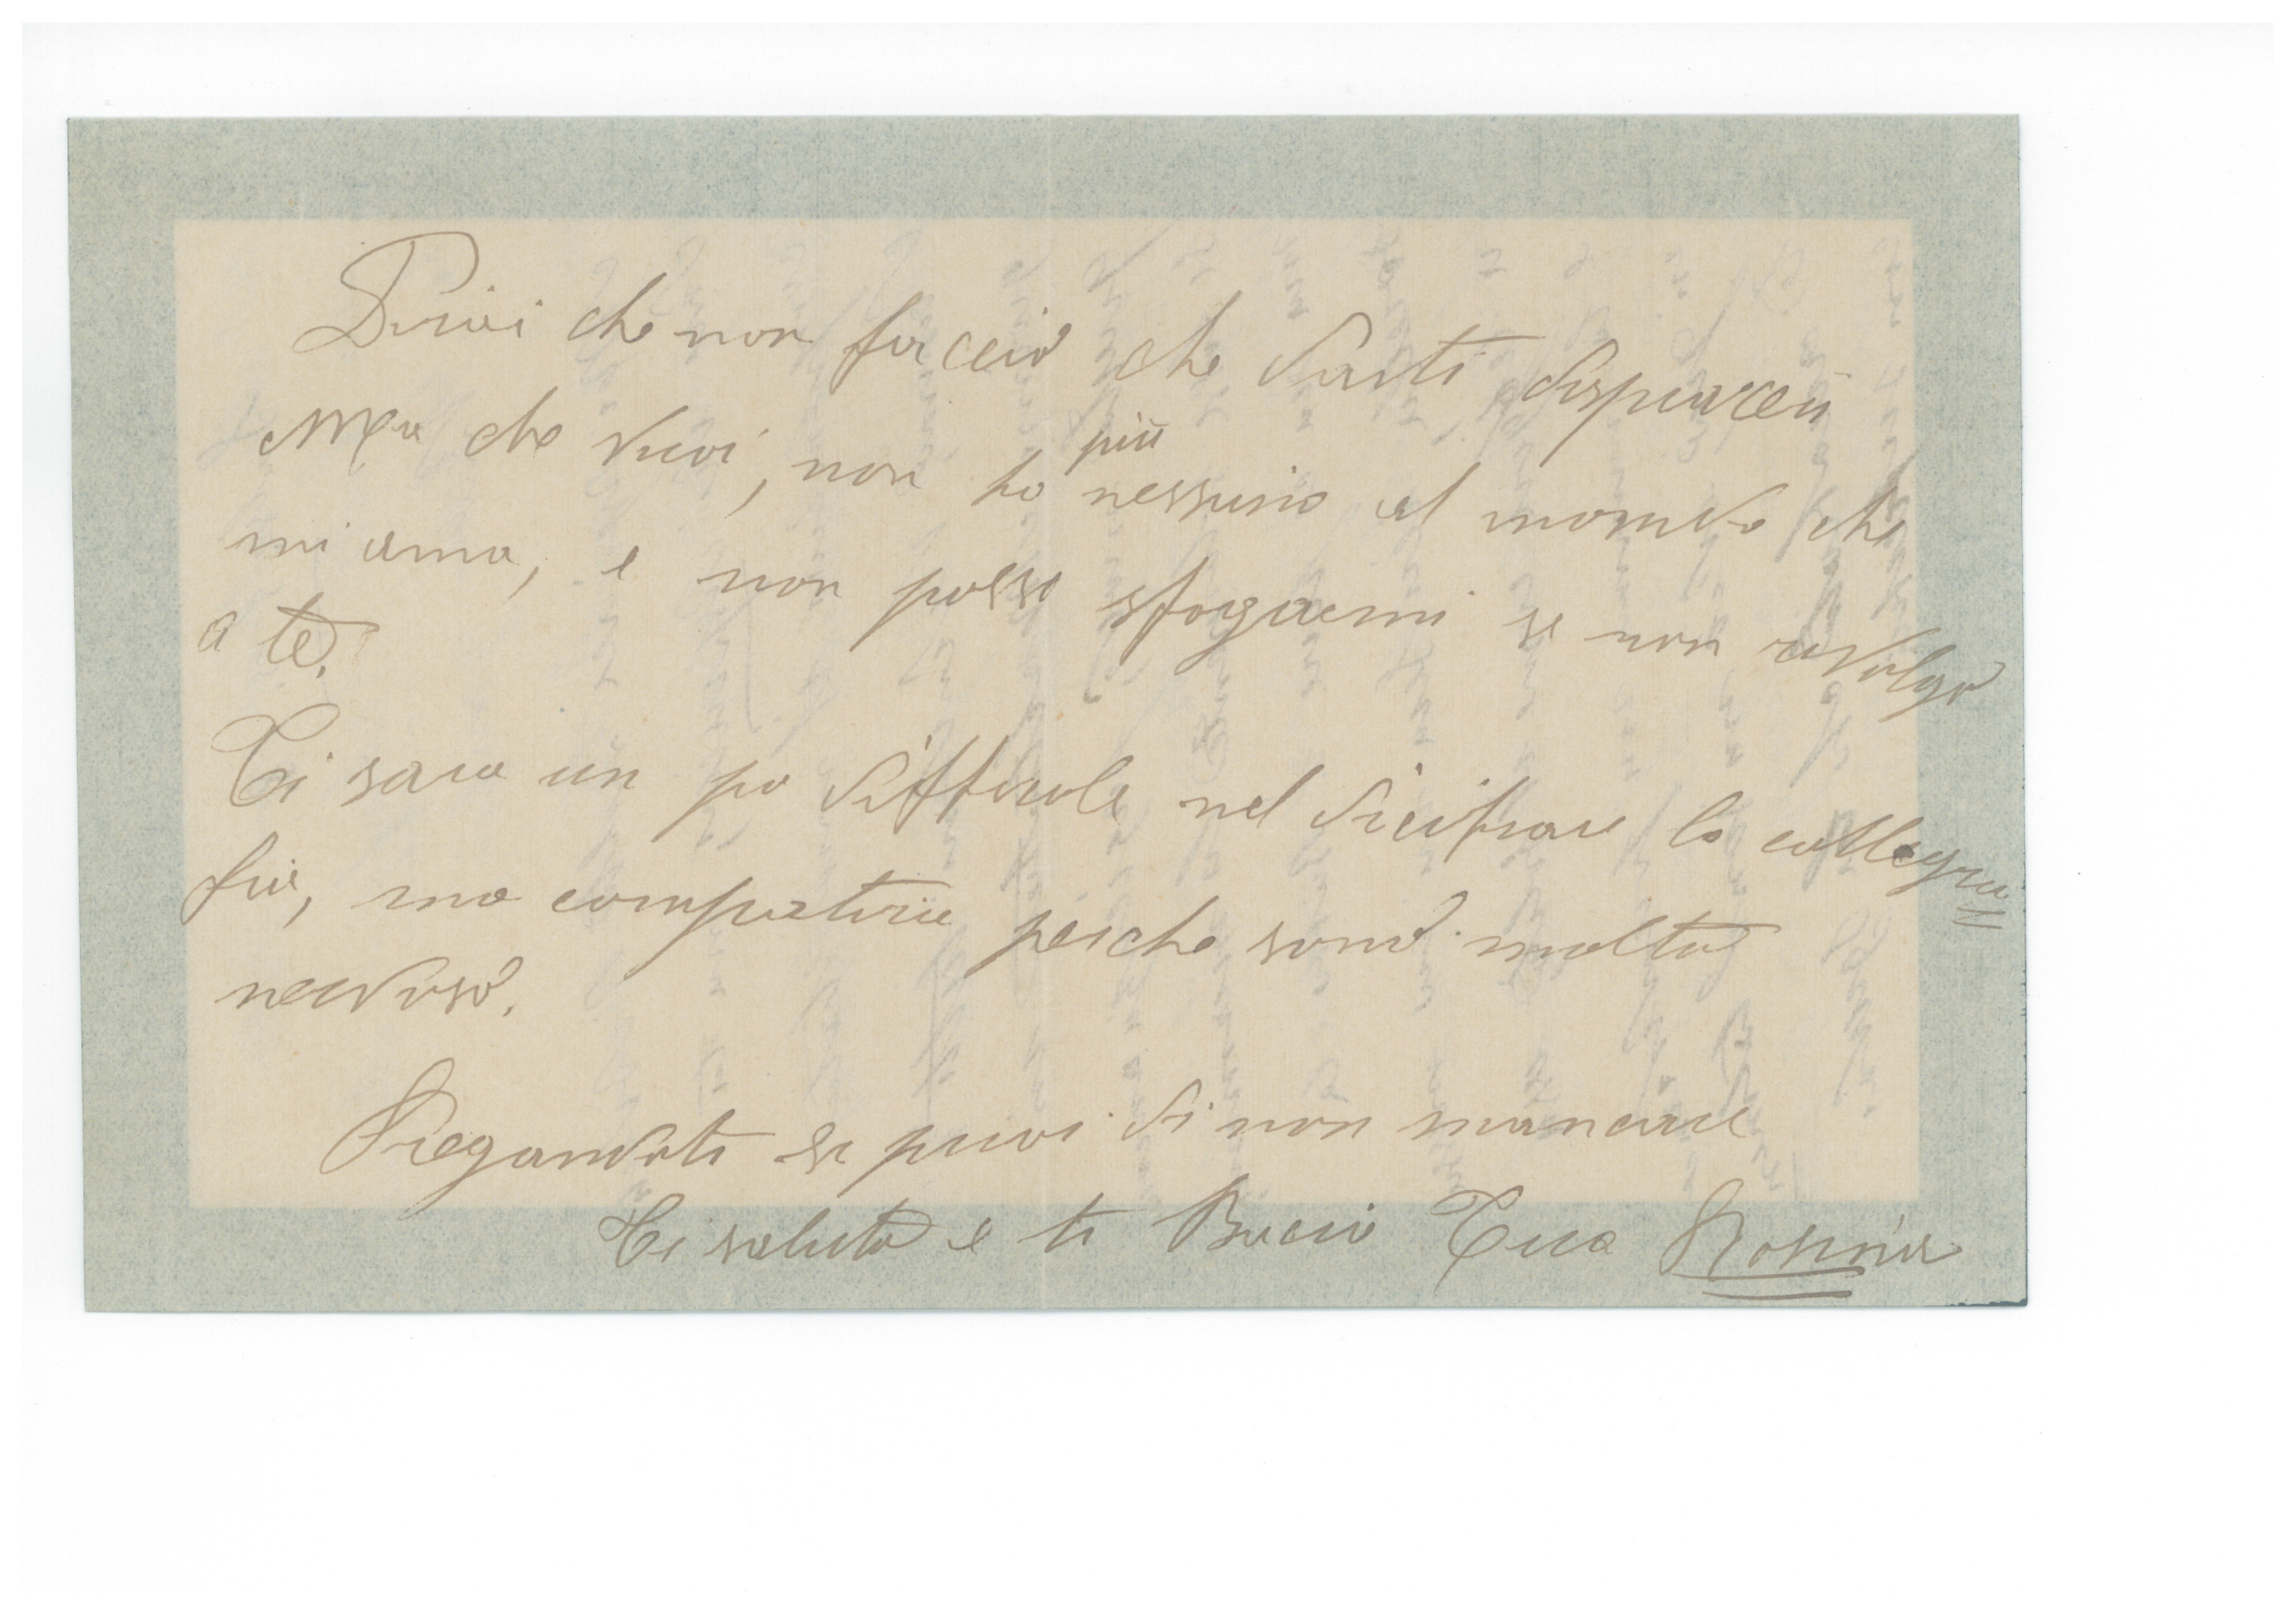 Dirai che non faccio che darti dispiaceri
Ma che vuoi, non ho più nessuno al mondo che
mi ama, e non posso sfogarmi se non rivolgo
a te.
Ti sara un po difficile nel dicifrare la calligra=
fia, ma compatirai perche sono molto
nervoso.
Pregandoti se puoi di non mancare
Ti saluto e ti Bacio Tua Rosina